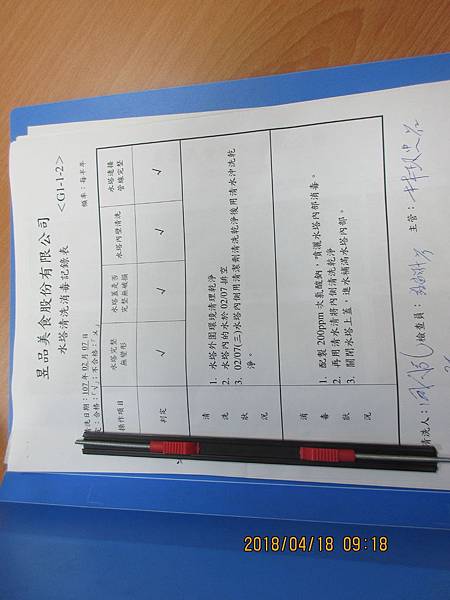 昱品美食股份有限公司
水塔清洗消毒記錄表 <G1-1-2>
清洗日期：107年02月07日 頻率：每半年
合格：「√」；不合格：「×」
操作項目 水塔完整無變形 水塔蓋是否完整無破損 水塔內壁清洗 水塔連接管線完整
判定 √ √ √ √
清洗狀況
1. 水塔外圍環境清理乾淨
2. 水塔內的水於 02/07 排空
3. 02/07(三)水塔內側用清潔劑清洗乾淨後用清水沖洗乾
淨。
消毒狀況
1. 配製 200ppm 次氯酸鈉，噴灑水塔內部消毒。
2. 再用清水清將內側清洗乾淨。
3. 關閉水塔上蓋，進水補滿水塔內部。
清洗人： 檢查員： 主管：
2018/04/18 09:18